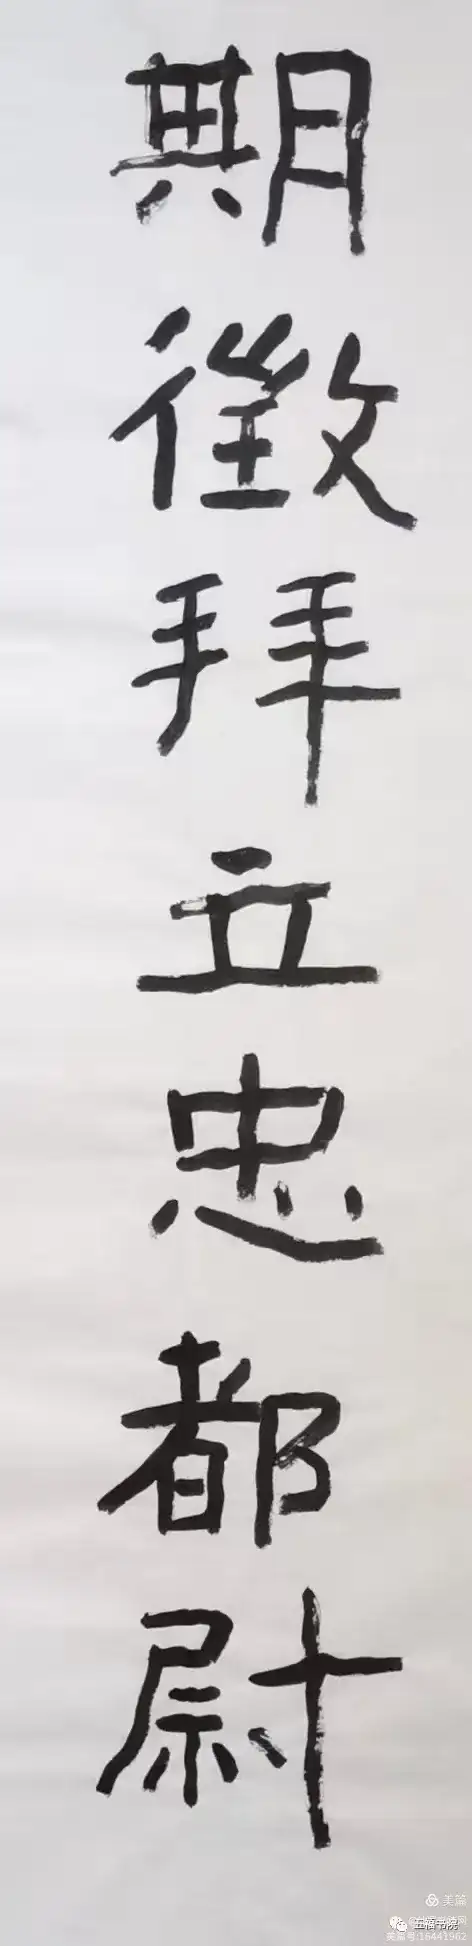 期徵拜立忠都尉
美篇
五福书院
美篇号:16441962